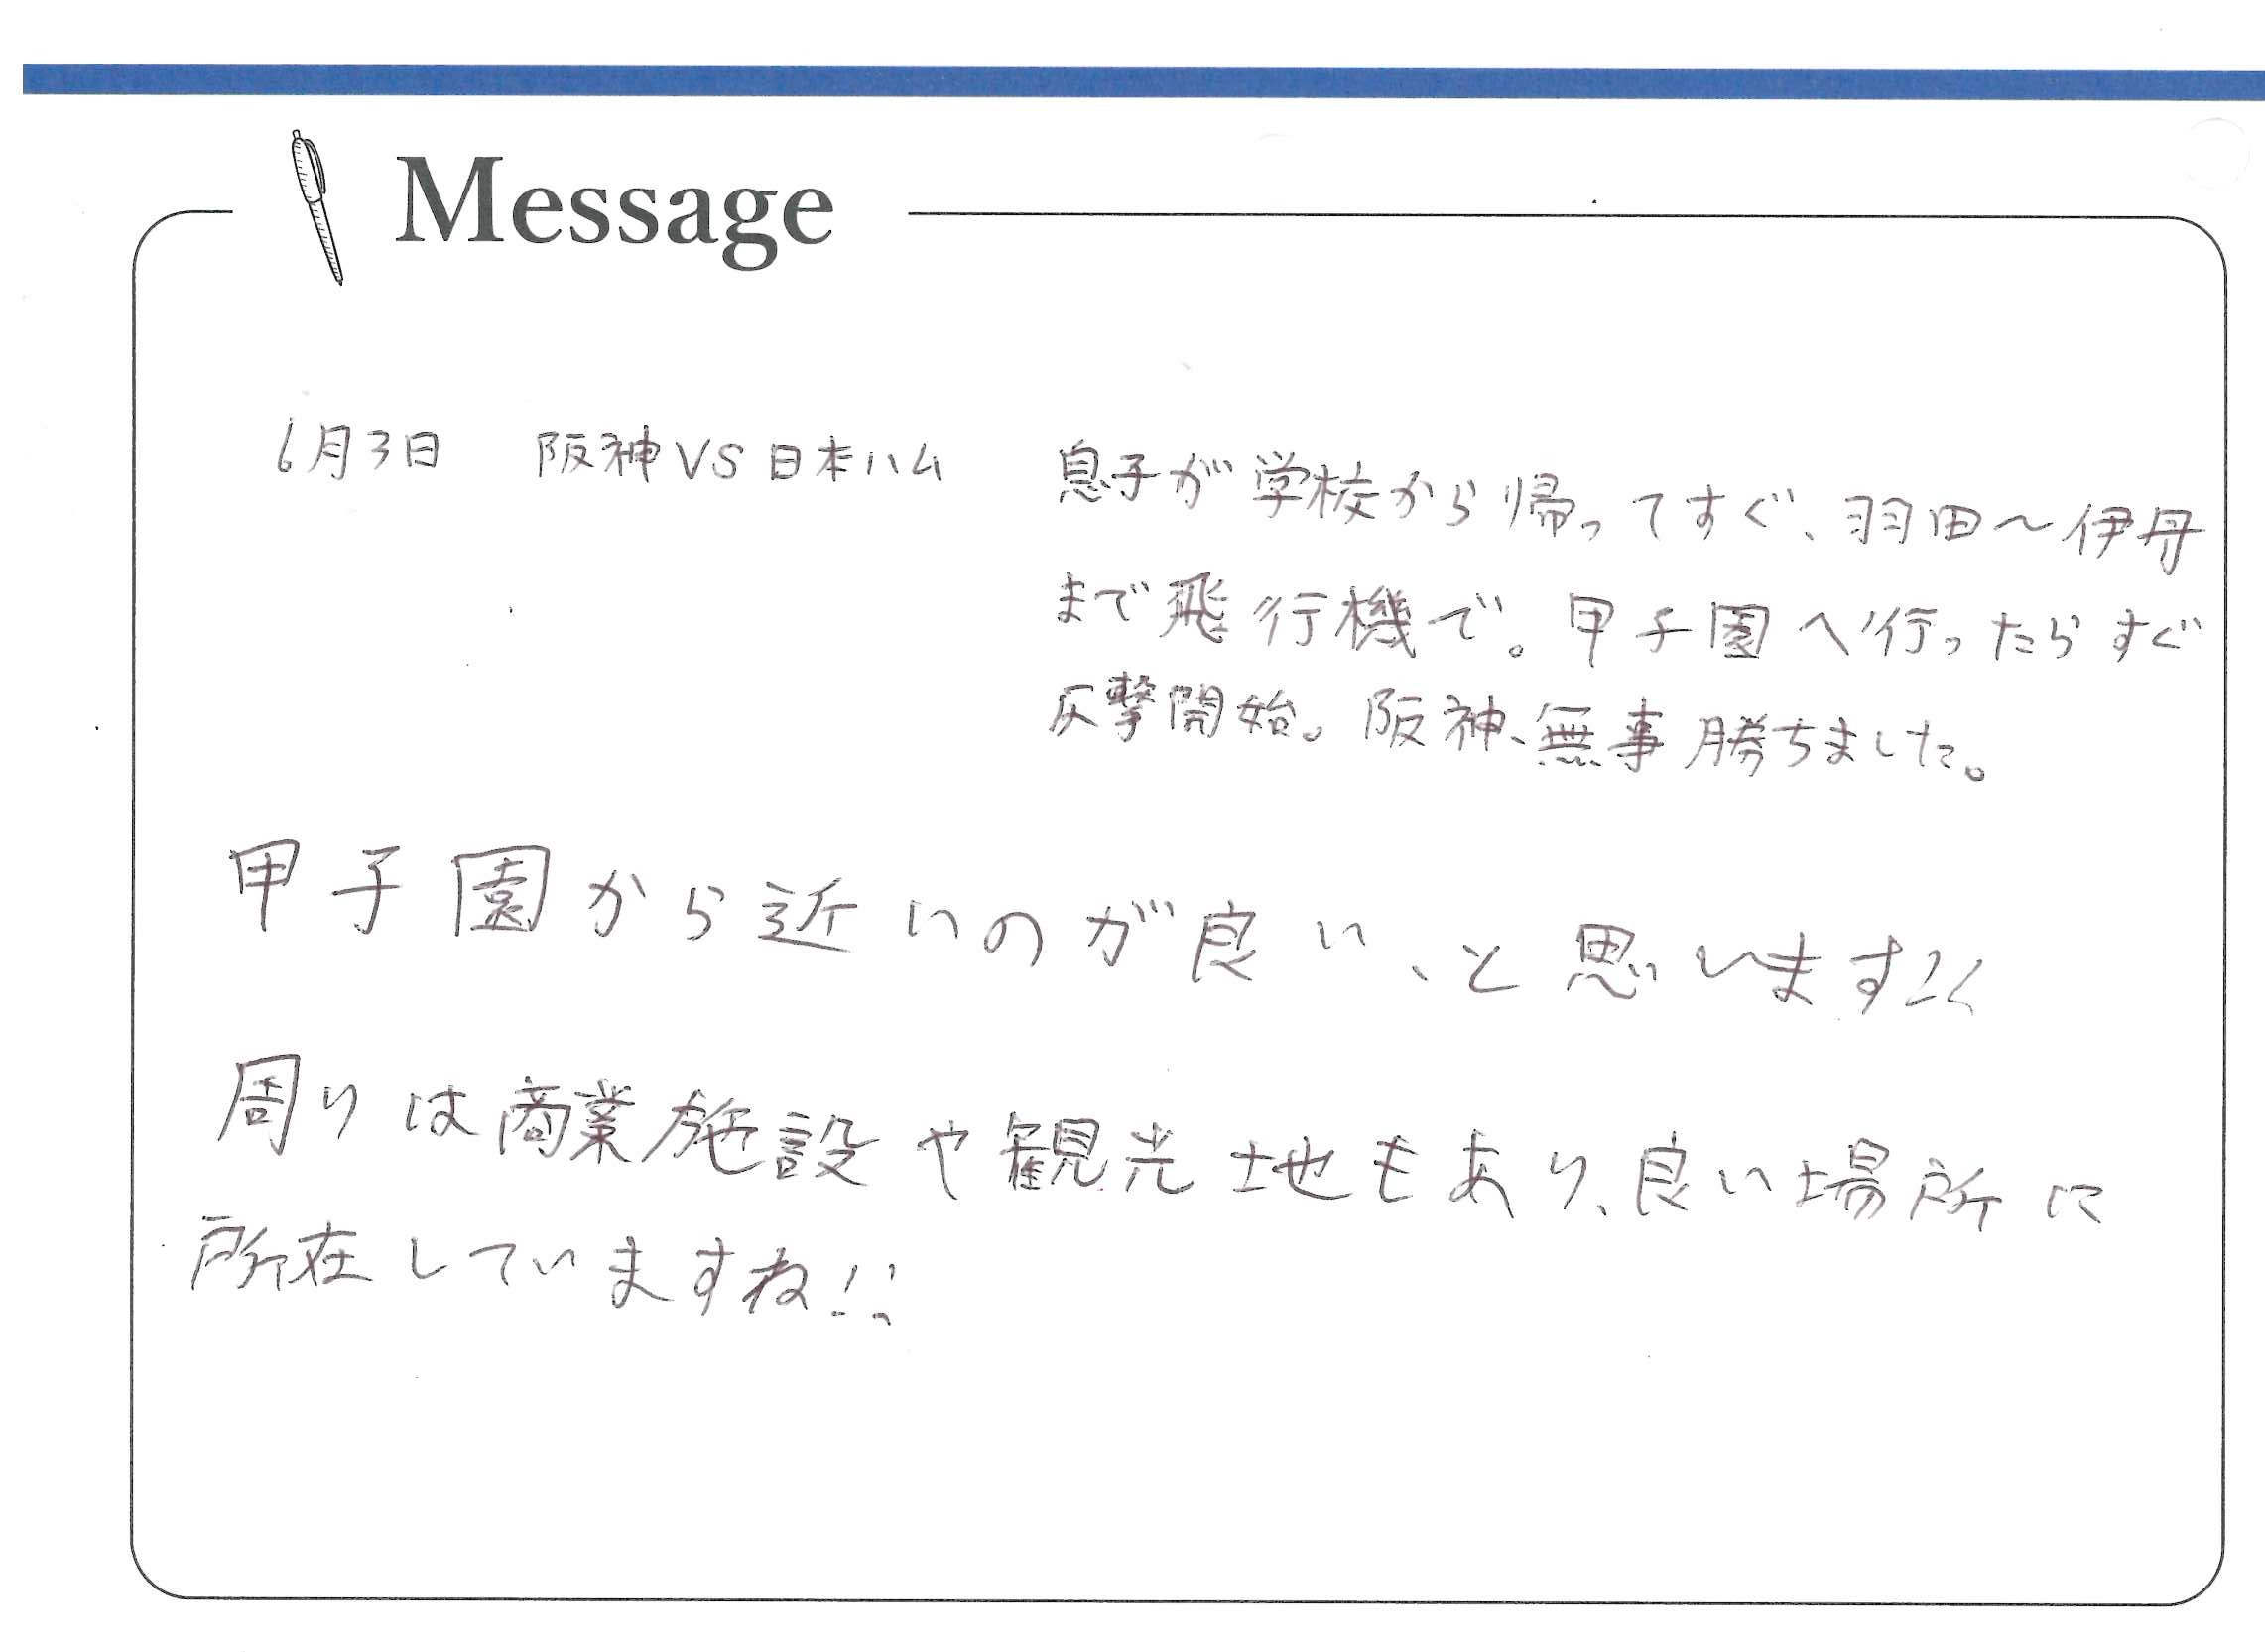 Message
6月3日 阪神VS日本ハム 息子が学校から帰ってすぐ、羽田〜伊丹
まで飛行機で。甲子園へ行ったらすぐ
反撃開始。阪神、無事勝ちました。
甲子園から近いのが良い、と思います!!
周りは商業施設や観光地もあり、良い場所に
所在していますね!!